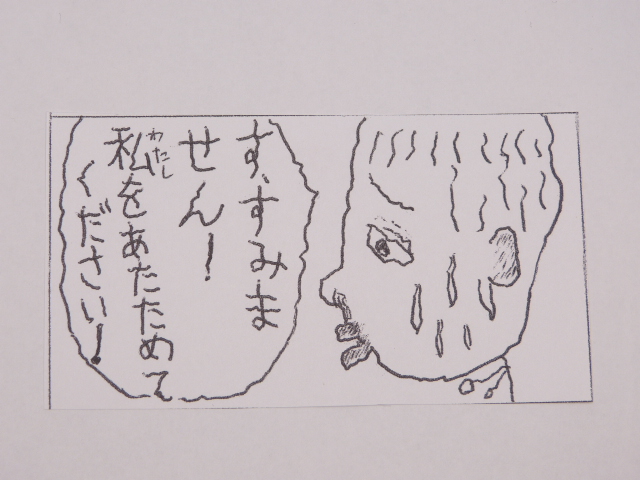 す、すみま
せん！
私をあたためて
わたし
ください！